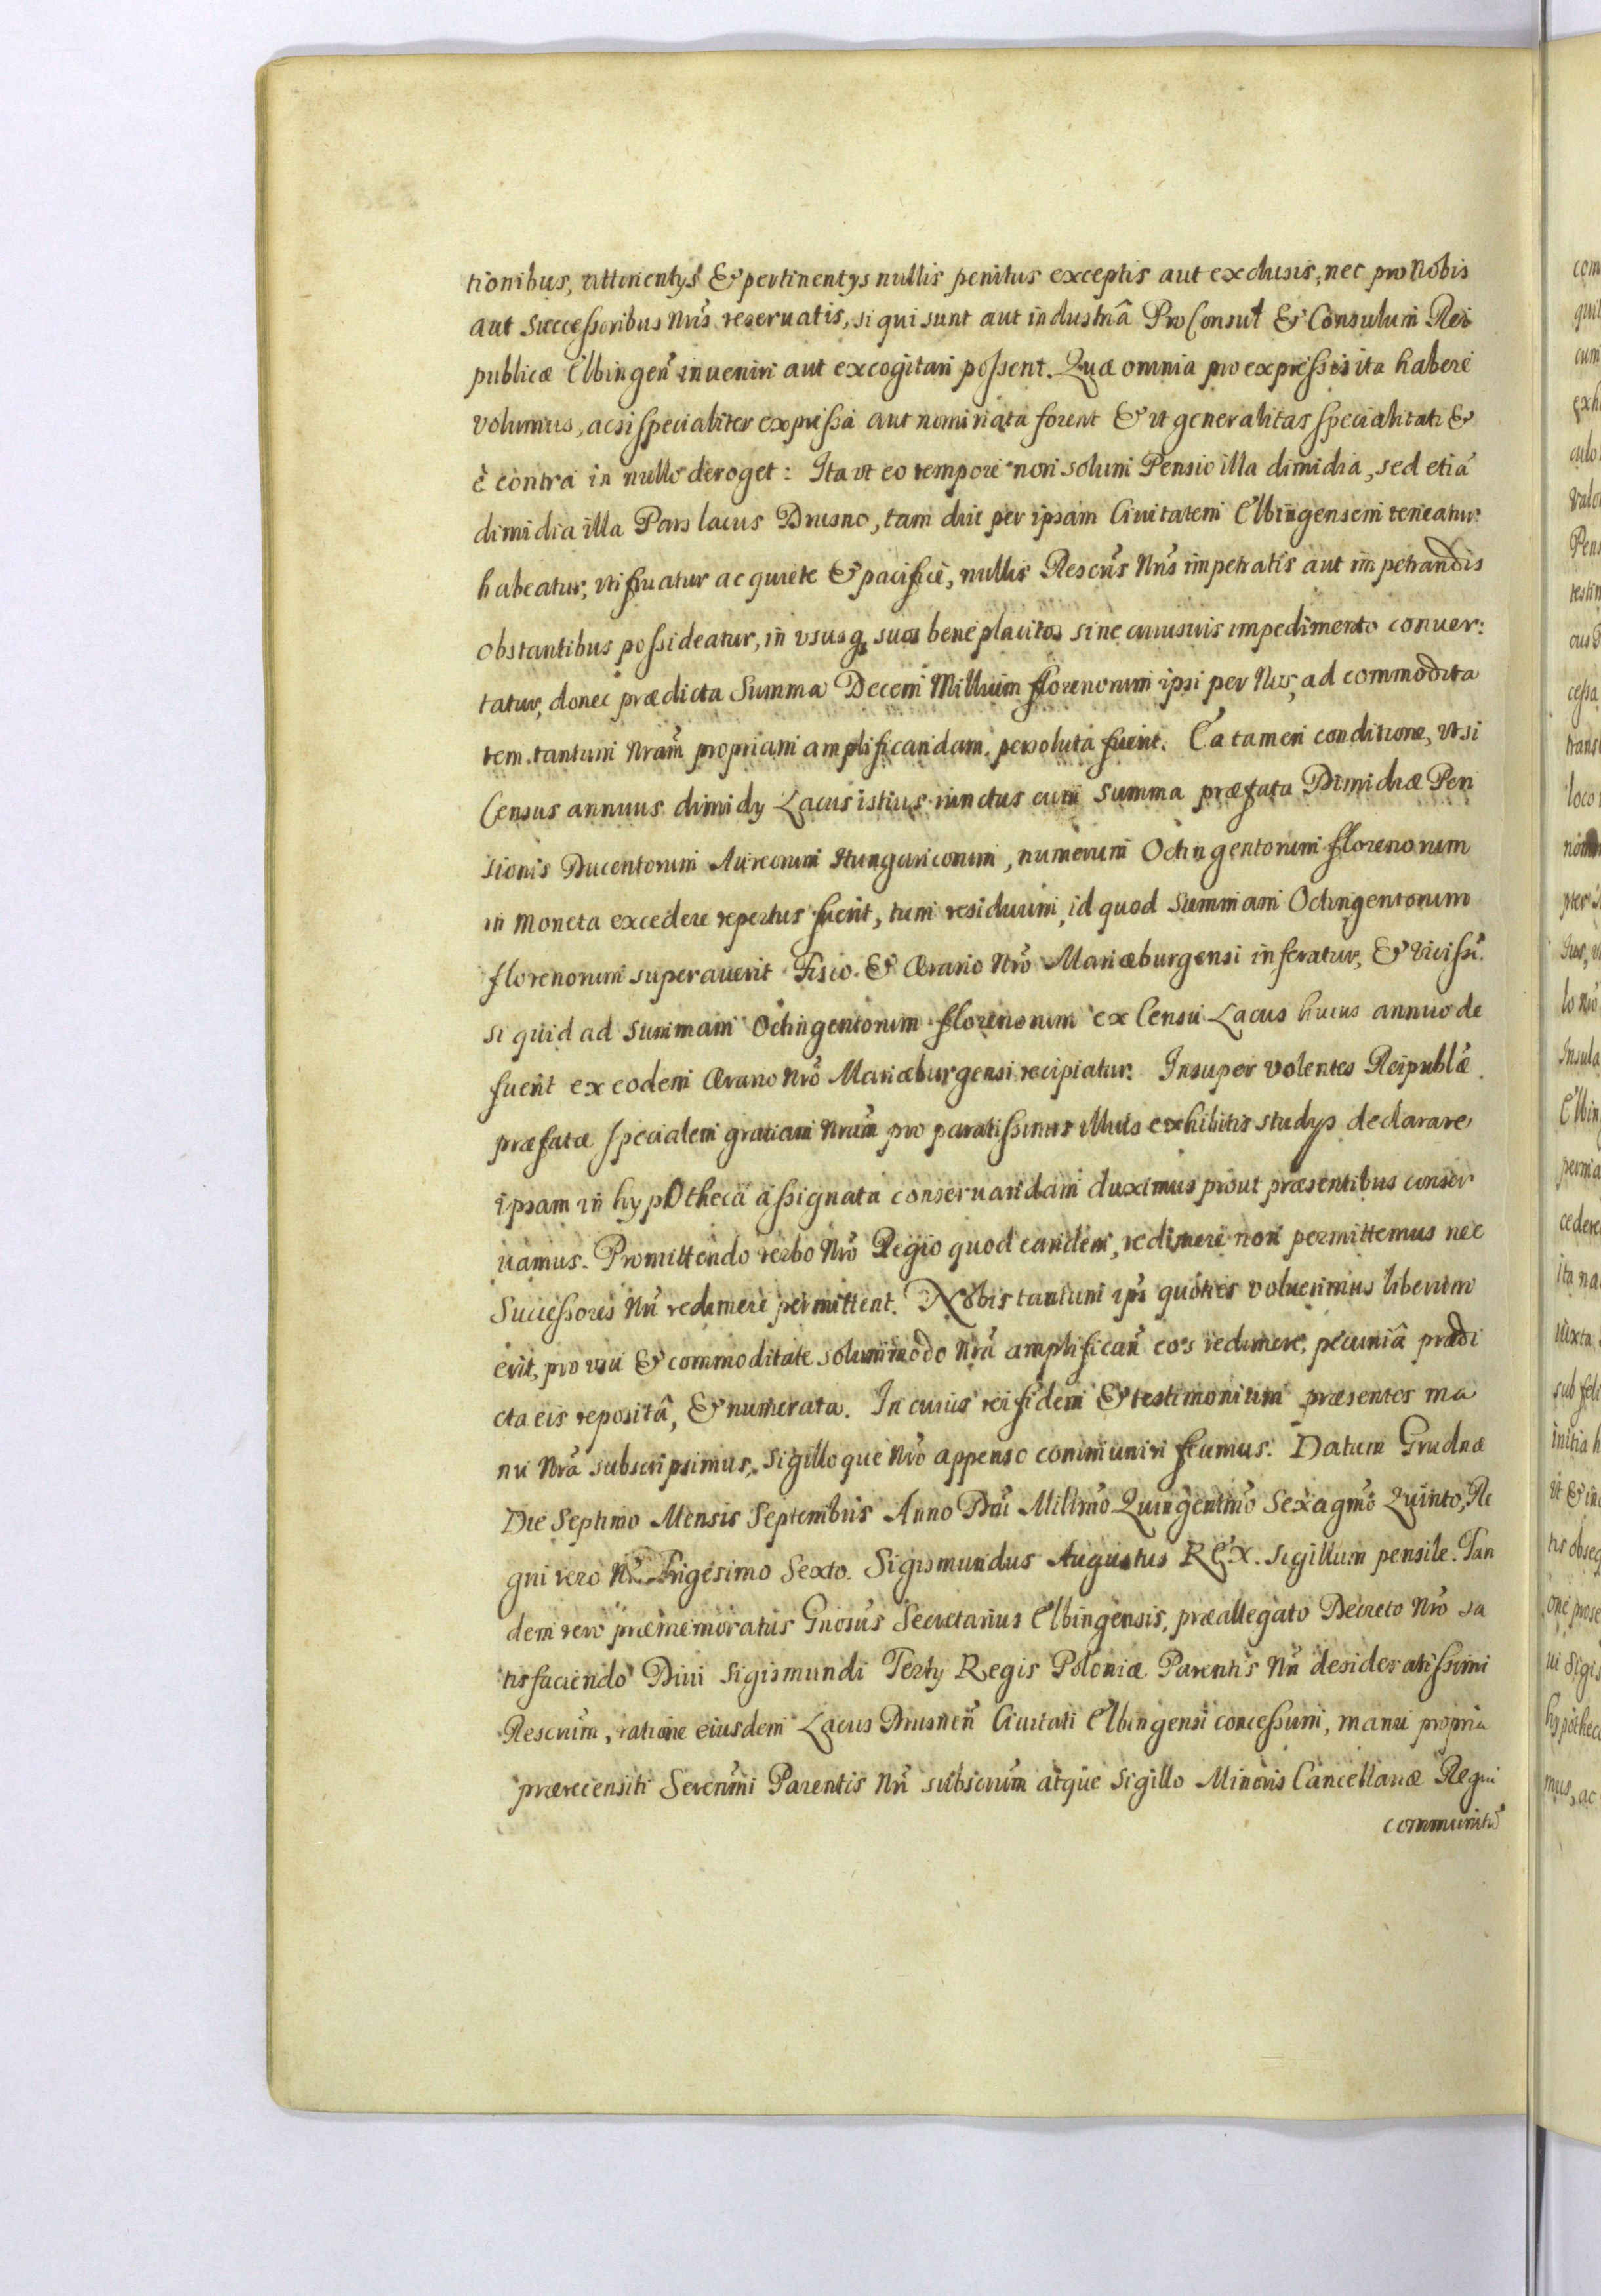 tionibus, attinentijs & pertinentys nullis penitus exceptis aut exclusis, nec pro Nobis
aut Successoribus Nris reseruatis, si qui sunt aut industriâ ProConsul & Consulum Rei
publicæ Elbingeñ inueniri aut excogitari possent. Quæ omnia pro expressis ita haberi
volumus, acsi specialiter expressa aut nominata forent & vt generalitas specialitati &
è contra in nullo deroget: Ita vt eo tempore non solum Pensio illa dimidia, sed etiã
dimidia illa Pars lacus Drusno, tam diu per ipsam Ciuitatem Elbingensem teneatur
habeatur, vtifruatur ac quiete & pacificè, nullis Rescris Nris impetratis aut impetrandis
obstantibus possideatur, in vsusq suos beneplacitos sine cuiusuis impedimento conuer:
tatur, donec prædicta Summa Decem Millium florenorum ipsi per Nos, ad commodita
tem tantum Nram propriam amplificandam persoluta fuerit. Ea tamen conditione, vt si
Census annuus dimidy Lacus istius iunctus cum Summa præfata Dimidiæ Pen
sionis Ducentorum Aureorum Hungaricorum, numerum Octingentorum florenorum
in moneta excedere repertus fuerit, tum residuum, id quod Summam Octingentorum
florenorum superauerit Fisco & Ærario Nro Mariæburgensi inferatur, & vicissi.
si quid ad summam Octingentorum florenorum ex Censu Lacus huius annuo de
fuerit ex eodem Ærario Nrõ Mariæburgensi recipiatur. Insuper volentes Reipublæ
præfatæ specialem gratiam Nram pro paratissimis illius exhibitis studys declarare
ipsam in hypotheca assignata conseruandam duximus prout præsentibus conser
uamus. Promittendo verbo Nrõ Regio quod eandem, redimere non permittemus nec
Successores Nri redimere permittent. Nobis tantum ipi quoties voluerimus liberum
erit, pro usu & commoditate solummodo Nrã amplificañ eos redimere, pecuniâ prædi
cta eis repositâ, & numerata. In cuius rei fidem & testimonium præsentes ma
nu Nrã subscripsimus, Sigilloque Nrõ appenso communiri fcumus. Datum Grudnæ
Die Septimo Mensis Septembris Anno Dni Milimo Quingentmo Sexagmo Quinto, Re
gni vero Trigesimo Sexto. Sigismundus Augustus REX. Sigillum pensile. Tan
dem vero præmemoratus Gnosus Secretarius Elbingensis, præallegato Decreto Nrõ sa
tisfaciendo Diui Sigismundi Terty Regis Poloniæ Parentis Nri desideratissimi
Rescrum, ratione eiusdem Lacus Drusneñ Ciuitati Elbingensi concessum, manu propria
prærecensiti Serenmi Parentis Nri subscrum atque Sigillo Minoris Cancellariæ Regni
communitũ